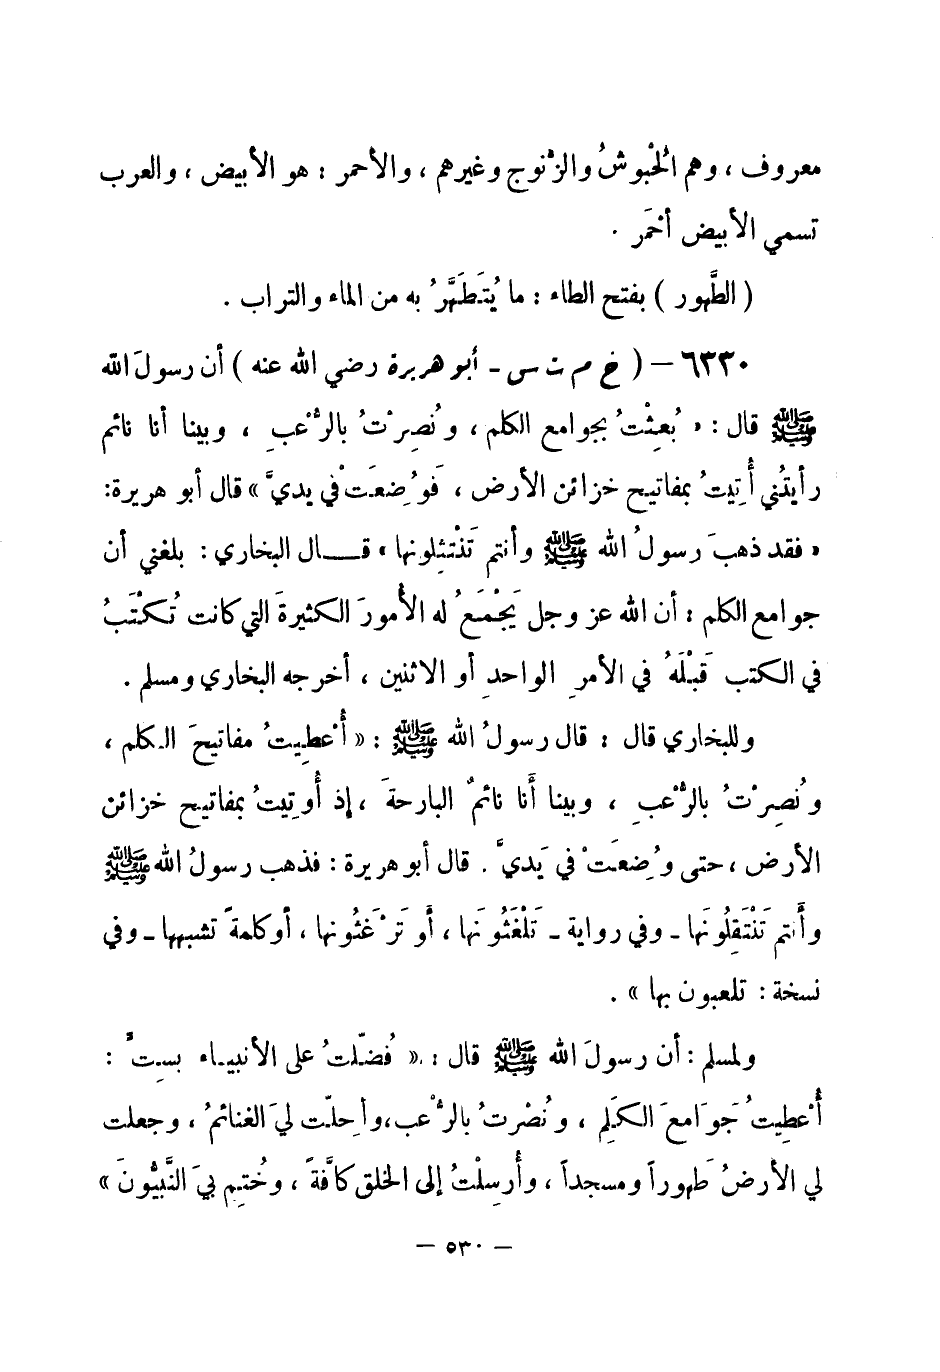 معروف ، وهم الحُبوشُ والزُّنوج وغيرهم ، والأحمر : هو الأبيض ، والعرب
تسمي الأبيض أحمَر .
( الطَّهور ) بفتح الطاء : ما يُتَطَهَّرُ به من الماء والتراب .
٦٣٣٠ – ( خ م ت س - أبو هريرة رضي الله عنه ) أن رسولَ الله
ﷺ قال : « بُعِثْتُ بجوامع الكلم ، ونُصِرْتُ بالرُّعبِ ، وبينا أنا نائم
رأيتُني أُتِيتُ بمفاتيح خزائن الأرض ، فَوُضِعَتْ في يديَّ » قال أبو هريرة:
« فقد ذهبَ رسولُ الله ﷺ وأنتم تَنْتَثِلونها » قــال البخاري : بلغني أن
جوامع الكلم : أن الله عز وجل يَجْمَعُ له الأمورَ الكثيرةَ التي كانت تُكْتَبُ
في الكتب قَبْلَهُ في الأمرِ الواحدِ أو الاثنين ، أخرجه البخاري ومسلم .
وللبخاري قال : قال رسولُ الله ﷺ : « أُعطِيتُ مفاتيحَ الكلم ،
ونُصِرْتُ بالرُّعبِ ، وبينا أنا نائمٌ البارحةَ ، إذ أُوتِيتُ بمفاتيح خزائن
الأرض ، حتى وُضِعَتْ في يَديَّ . قال أبو هريرة : فذهب رسولُ الله ﷺ
وأنتم تَنْتَقِلُونَها ـ وفي رواية ـ تَلْغَثُونَها ، أو تَرْغَثُونها ، أو كلمةً تشبهها ـ وفي
نسخة : تلعبون بها » .
ولمسلم : أن رسولَ الله ﷺ قال : « فُضِّلتُ على الأنبيـاء بسِتٍّ :
أُعطِيتُ جَوَامعَ الكَلِمِ ، ونُصْرتُ بالرُّعب، وأحِلّت ليَ الغنائمُ ، وجعلت
لي الأرضُ طَهوراً ومسجداً ، وأُرسِلْتُ إلى الخلق كافَّةً ، وخُتِم بيَ النَّبيُّونَ »
– ٥٣٠ –